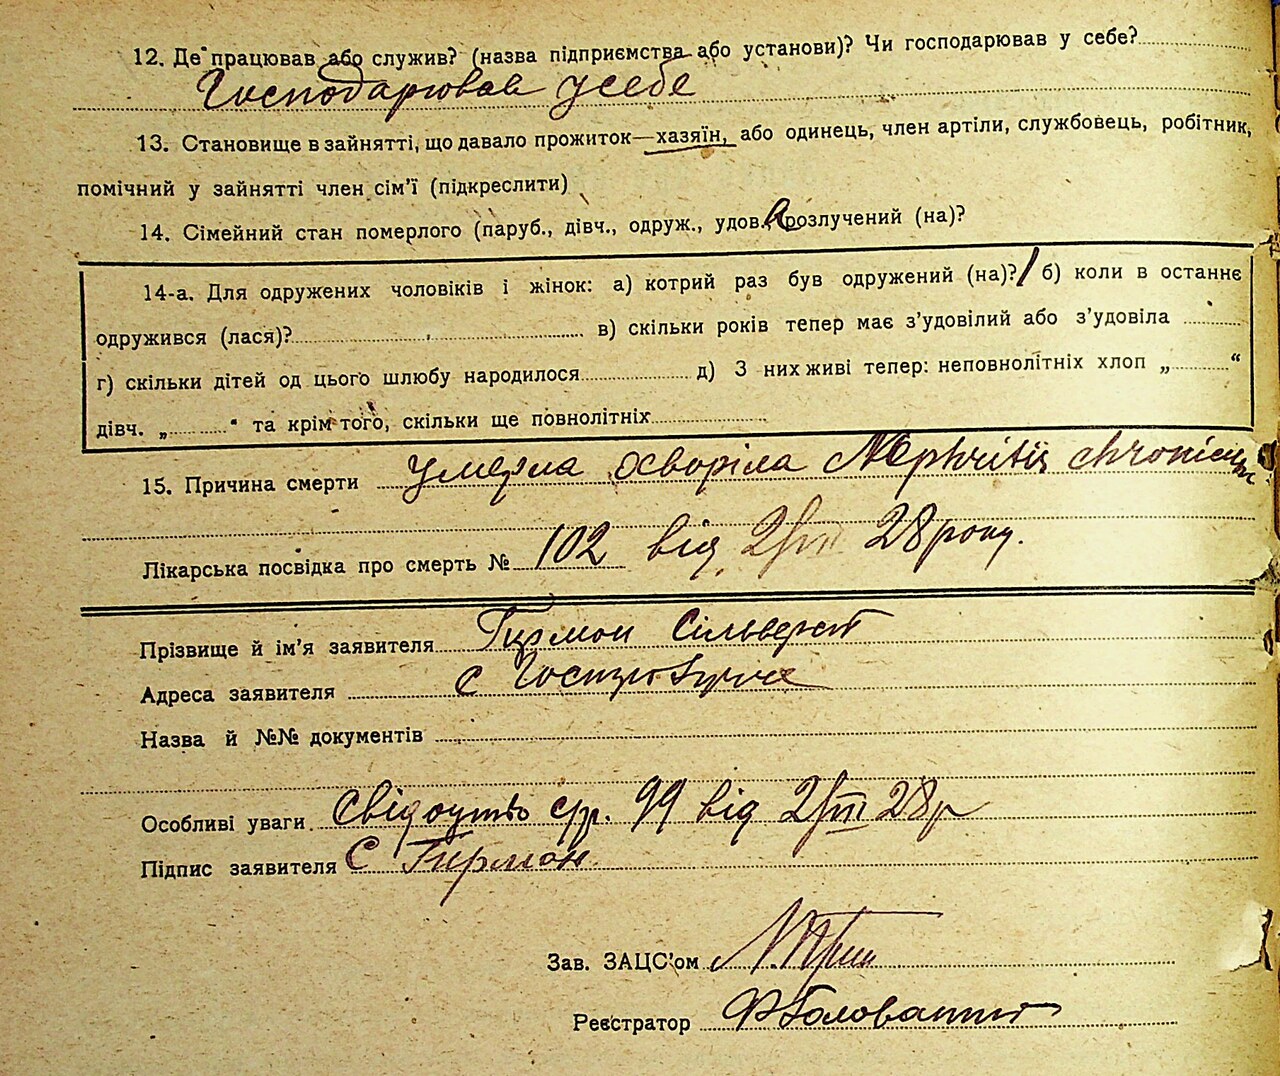 12. Де працював або служив? (назва підприємства або установи)? Чи господарював у себе?
Господарював у себе
13. Становище в зайнятті, що давало прожиток—хазяїн, або одинець, член артіли, службовець, робітник,
помічний у зайнятті член сім'ї (підкреслити)
14. Сімейний стан померлого (паруб., дівч., одруж., удов., розлучений (на)?
14-а. Для одружених чоловіків і жінок: а) котрий раз був одружений (на)? / б) коли в останнє
одружився (лася)? в) скільки років тепер має з'удовілий або з'удовіла
г) скільки дітей од цього шлюбу народилося д) З них живі тепер: неповнолітніх хлоп „ “
дівч. „ “ та крім того, скільки ще повнолітніх
15. Причина смерти умерла Nephritis chronica
Лікарська посвідка про смерть № 102 від 2/VII 28 року.
Прізвище й ім'я заявителя Гирман Сільверст
Адреса заявителя с
Назва й №№ документів
Особливі уваги Свідоцтво 99 від 2/VII 28 р
Підпис заявителя С Гирман
Зав. ЗАЦС'ом
Реєстратор